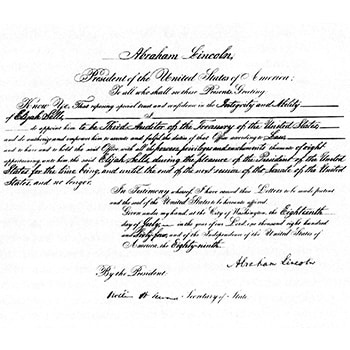 Abraham Lincoln,
President of the United States of America;
To all who shall see these Presents, Greeting
Know Ye, That reposing special trust and confidence in the Integrity and Ability
of Elijah Sells, I
do appoint him to be Third Auditor of the Treasury of the United States,
and do authorize and empower him to execute and fulfil the duties of that Office according to Law,
and to have and to hold the said Office with all the powers, privileges and emoluments thereunto of right
appertaining unto him the said Elijah Sells, during the pleasure of the President of the United
States for the time being, and until the end of the next session of the Senate of the United
States, and no longer.
In Testimony whereof, I have caused these Letters to be made patent
and the seal of the United States to be hereunto affixed.
Given under my hand at the City of Washington, the Eighteenth
day of July, in the year of our Lord, one thousand eight hundred
and Sixty four, and of the Independence of the United States of
America, the Eighty-ninth.
Abraham Lincoln
By the President
Secretary of State